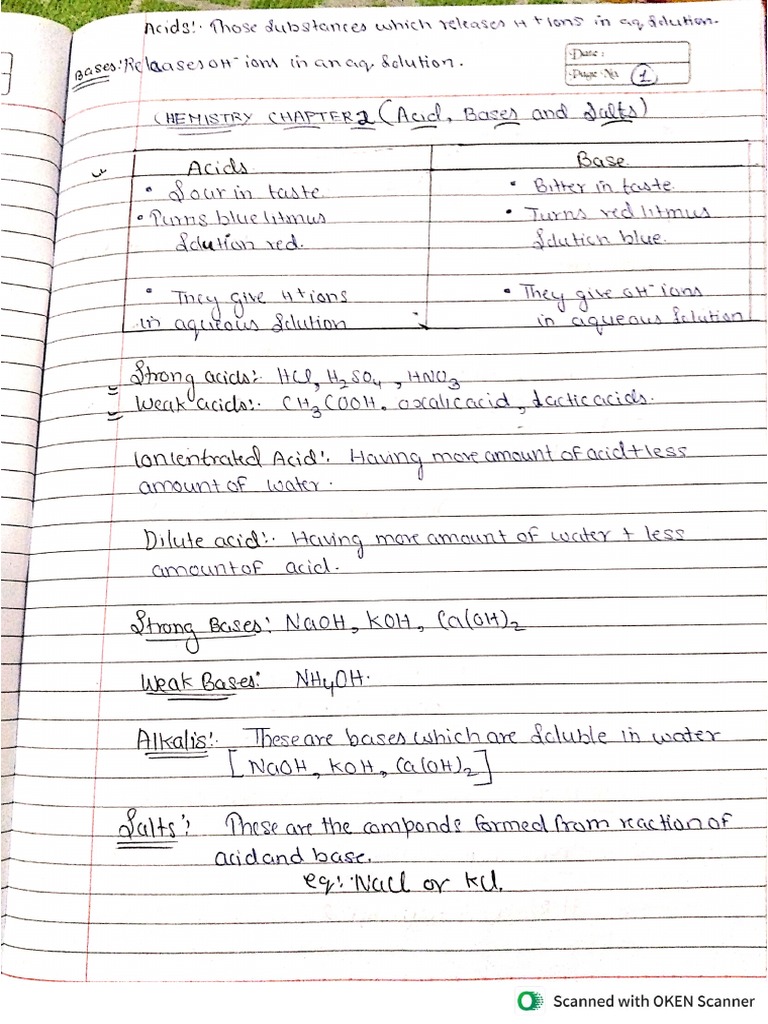 Acids:- Those Substances which releases H+ Ions in aq. Solution.
Bases: Releases OH- ions in an aq. Solution.
Date:
Page No. 1
CHEMISTRY CHAPTER 2 (Acid, Bases and Salts)
Acids
Base
• Sour in taste
• Bitter in taste
• Turns blue litmus
Solution red.
• Turns red litmus
Solution blue.
• They give H+ ions
in aqueous Solution
• They give OH- ions
in aqueous Solution
Strong acids:- HCl, H2SO4, HNO3
Weak acids:- CH3COOH, oxalic acid, Lactic acids.
Concentrated Acid:- Having more amount of acid + less
amount of water.
Dilute acid:- Having more amount of water + less
amount of acid.
Strong Bases: NaOH, KOH, Ca(OH)2
Weak Bases: NH4OH.
Alkalis:- These are bases which are Soluble in water
[NaOH, KOH, Ca(OH)2]
Salts: These are the componds formed from reaction of
acid and base.
eg:- NaCl or KCl.
Scanned with OKEN Scanner